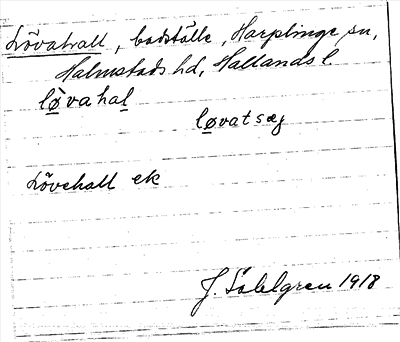 Lövahall, badställe, Harplinge sn,
Halmstads hd, Hallands l
løvahal
løvatsæj
Lövehall ek
J. Sahlgren 1918